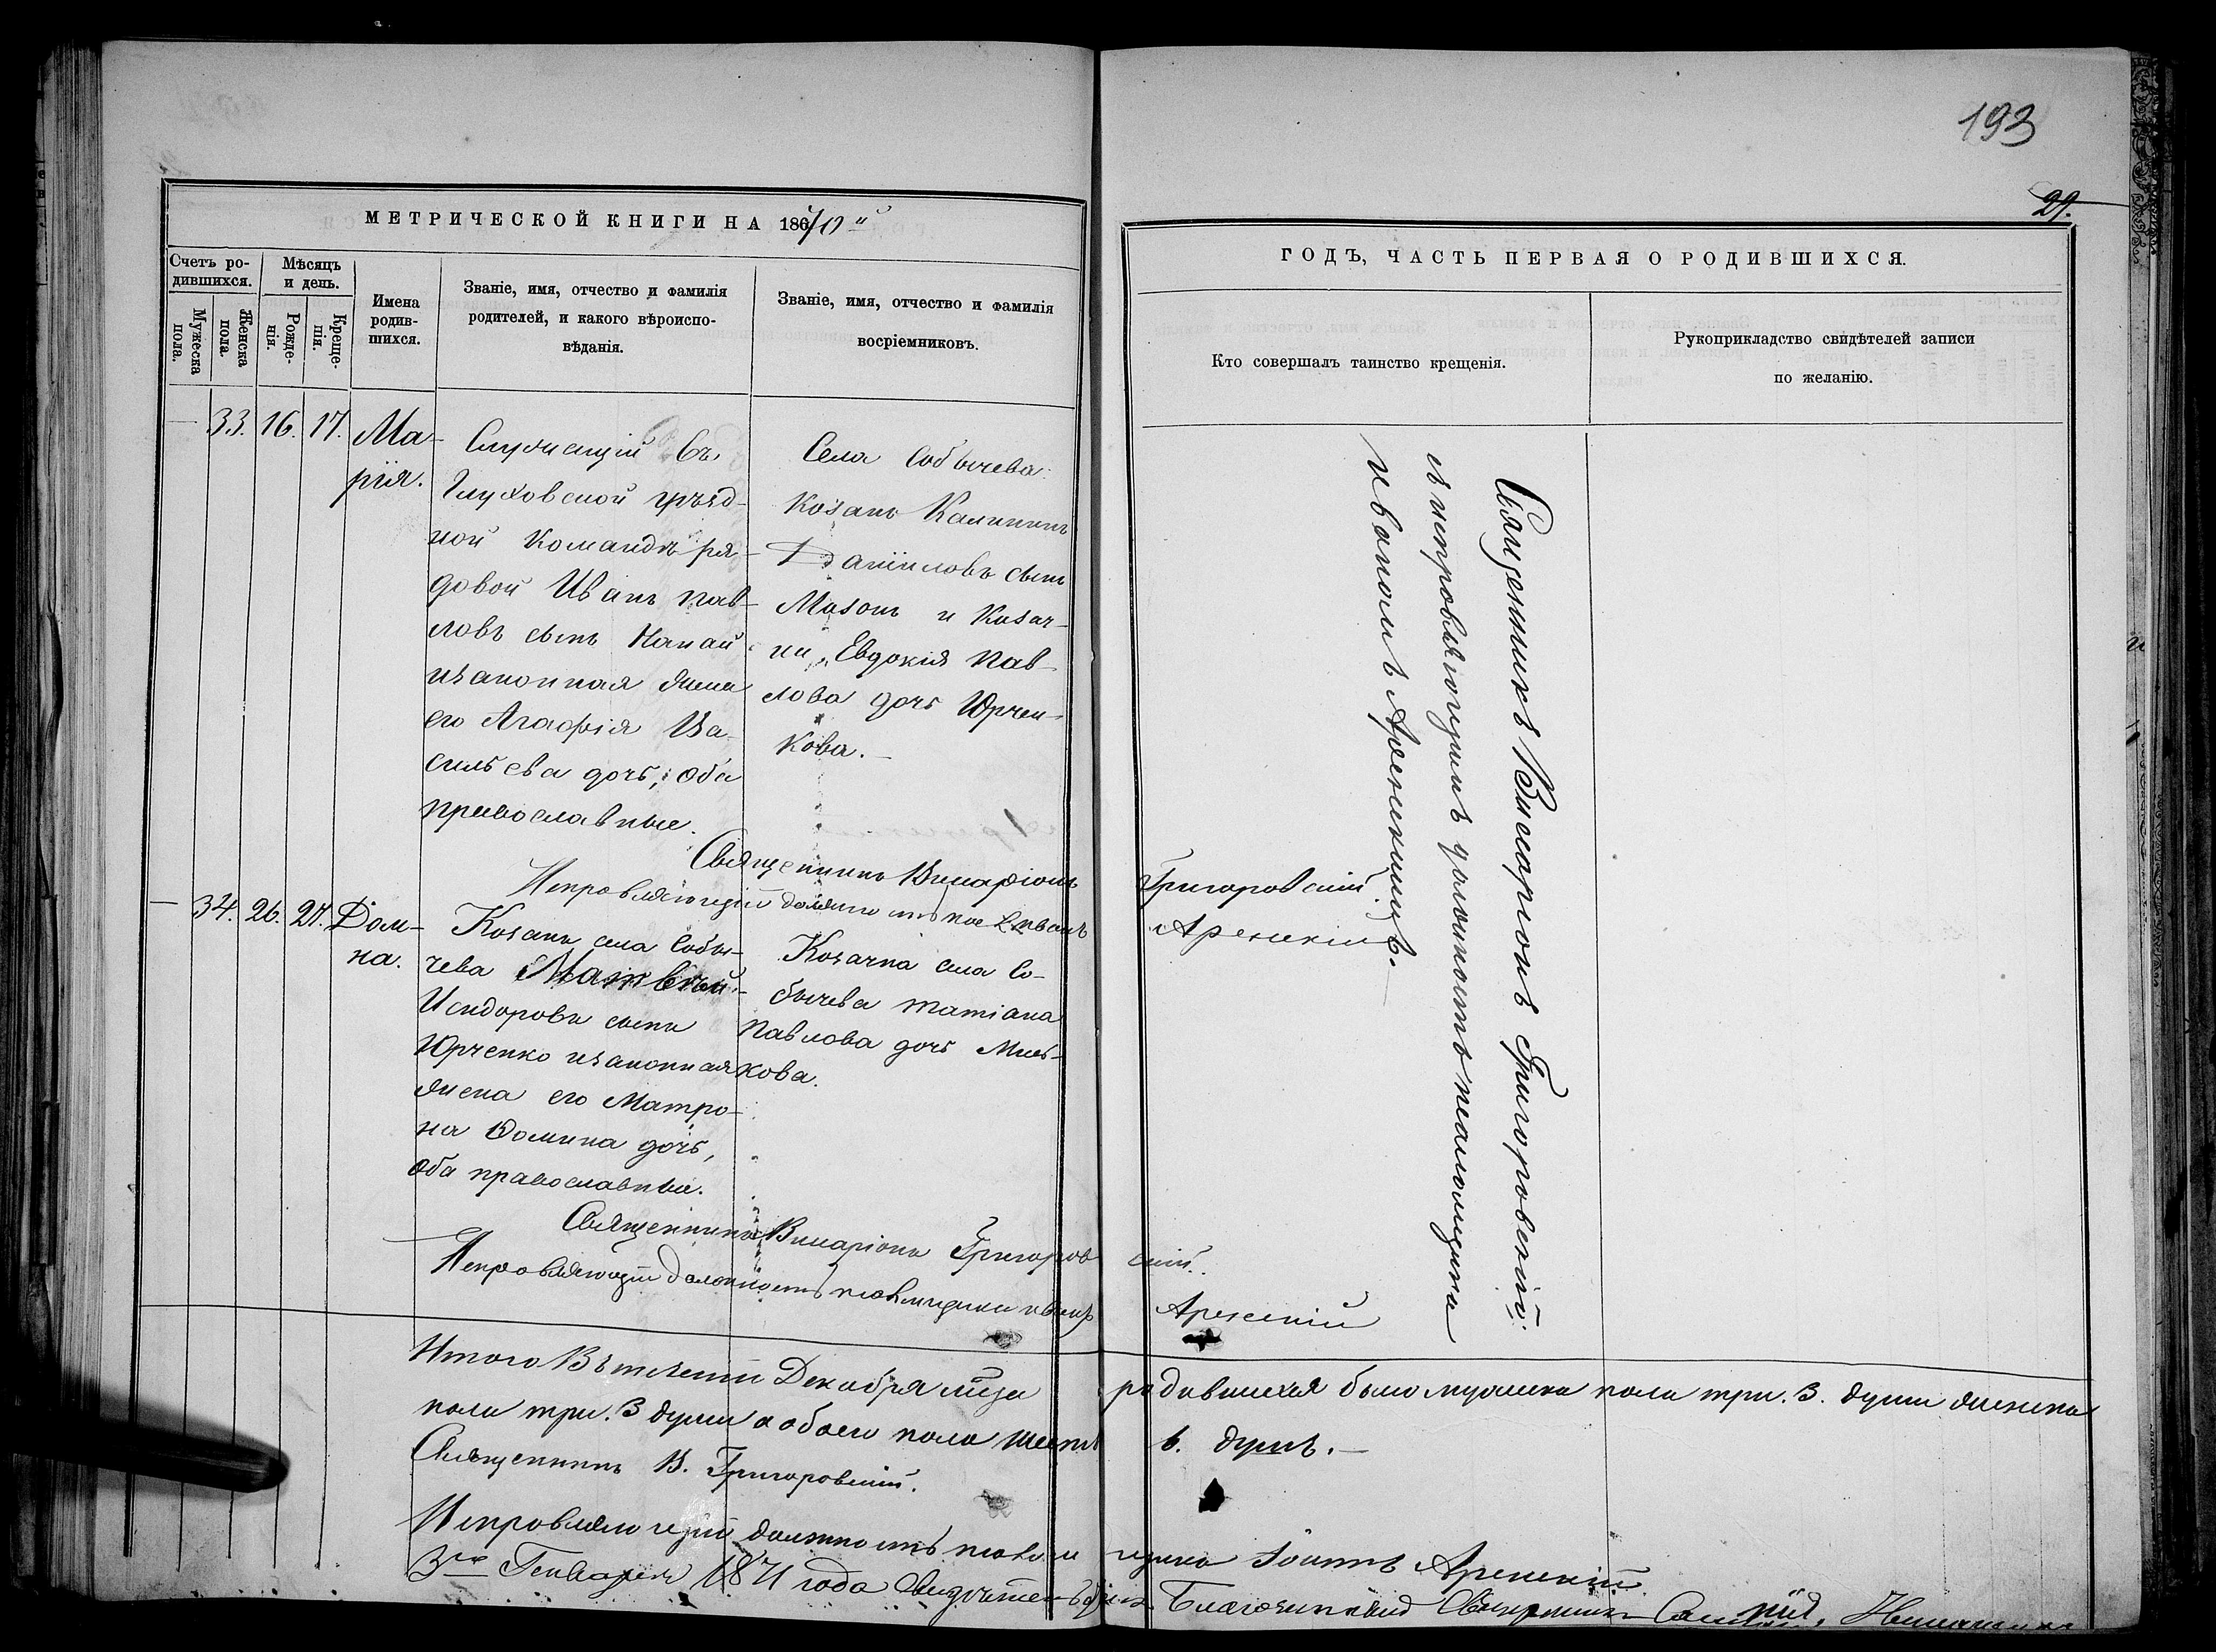 193
29.
МЕТРИЧЕСКОЙ КНИГИ НА 1870й
ГОДЪ, ЧАСТЬ ПЕРВАЯ О РОДИВШИХСЯ.
Счетъ ро-
дившихся.
Мужеска
пола.
Женска
пола.
Мѣсяцъ
и день.
Рожде-
нія.
Креще-
нія.
Имена
родив-
шихся.
Званіе, имя, отчество и фамилія
родителей, и какого вѣроиспо-
вѣданія.
Званіе, имя, отчество и фамилія
восріемниковъ.
Кто совершалъ таинство крещенія.
Рукоприкладство свидѣтелей записи
по желанію.
33. 16. 17. Ма-
рія.
Служащій въ
Глуховской уѣзд-
ной командѣ ря-
довой Иванъ Пав-
ловъ сынъ
изаконная жена
его Агафія Ва-
сильева дочь, оба
православные.
Села Собычева
козакъ Калининъ
Даніиловъ сынъ
Мазокъ и козач-
ки Евдокія Пав-
лова дочь Юрчен-
кова.
Священникъ Виссаріонъ Григоровскій.
Исправляющій должность Иванъ Аренскій
Священникъ Виссаріонъ Григоровскій
съ исправляющимъ должность псаломщика
Иваномъ Аренскимъ.
34. 26. 27. Дом-
на.
Козакъ села Собы-
чева Матвѣй
Исидоровъ сынъ
Юрченко изаконная
жена его Матро-
на Фомина дочь,
оба православные.
Козачка села Со-
бычева Татіана
Павлова дочь Мись-
кова.
Священникъ Виссаріонъ Григоровскій.
Исправляющій должность псаломщика Иванъ Аренскій
Итого въ теченіи Декабря м͠ца родившихся было мужеска пола три. 3. души женска
пола три. 3 души а обоего пола шесть 6. душъ.
Священникъ В. Григоровскій.
Исправляющій должность псаломщика Іоаннъ Аренскій
3го Генваря 1871 года Благочинный Священникъ